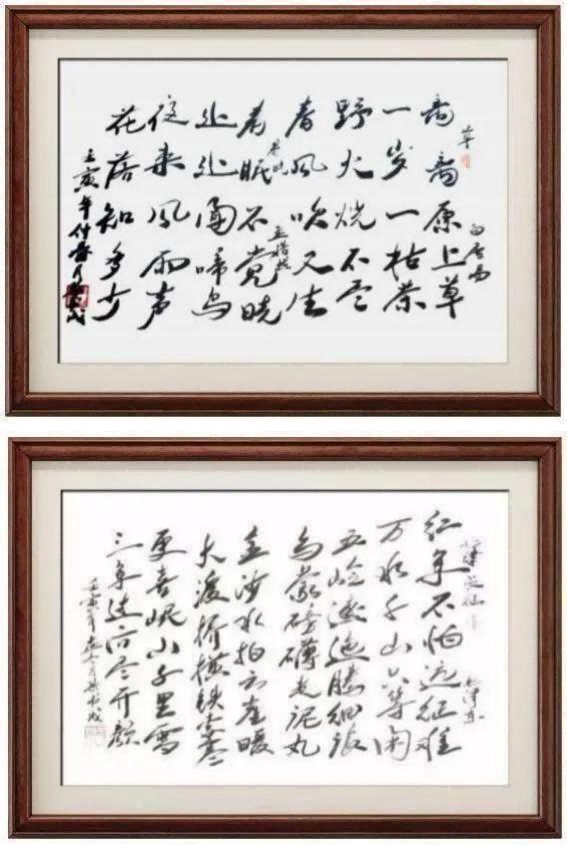 草
白居易
离离原上草
一岁一枯荣
野火烧不尽
春风吹又生
春晓
孟浩然
春眠不觉晓
处处闻啼鸟
夜来风雨声
花落知多少
壬寅年
七律长征
毛泽东
红军不怕远征难
万水千山只等闲
五岭逶迤腾细浪
乌蒙磅礴走泥丸
金沙水拍云崖暖
大渡桥横铁索寒
更喜岷山千里雪
三军过后尽开颜
壬寅年